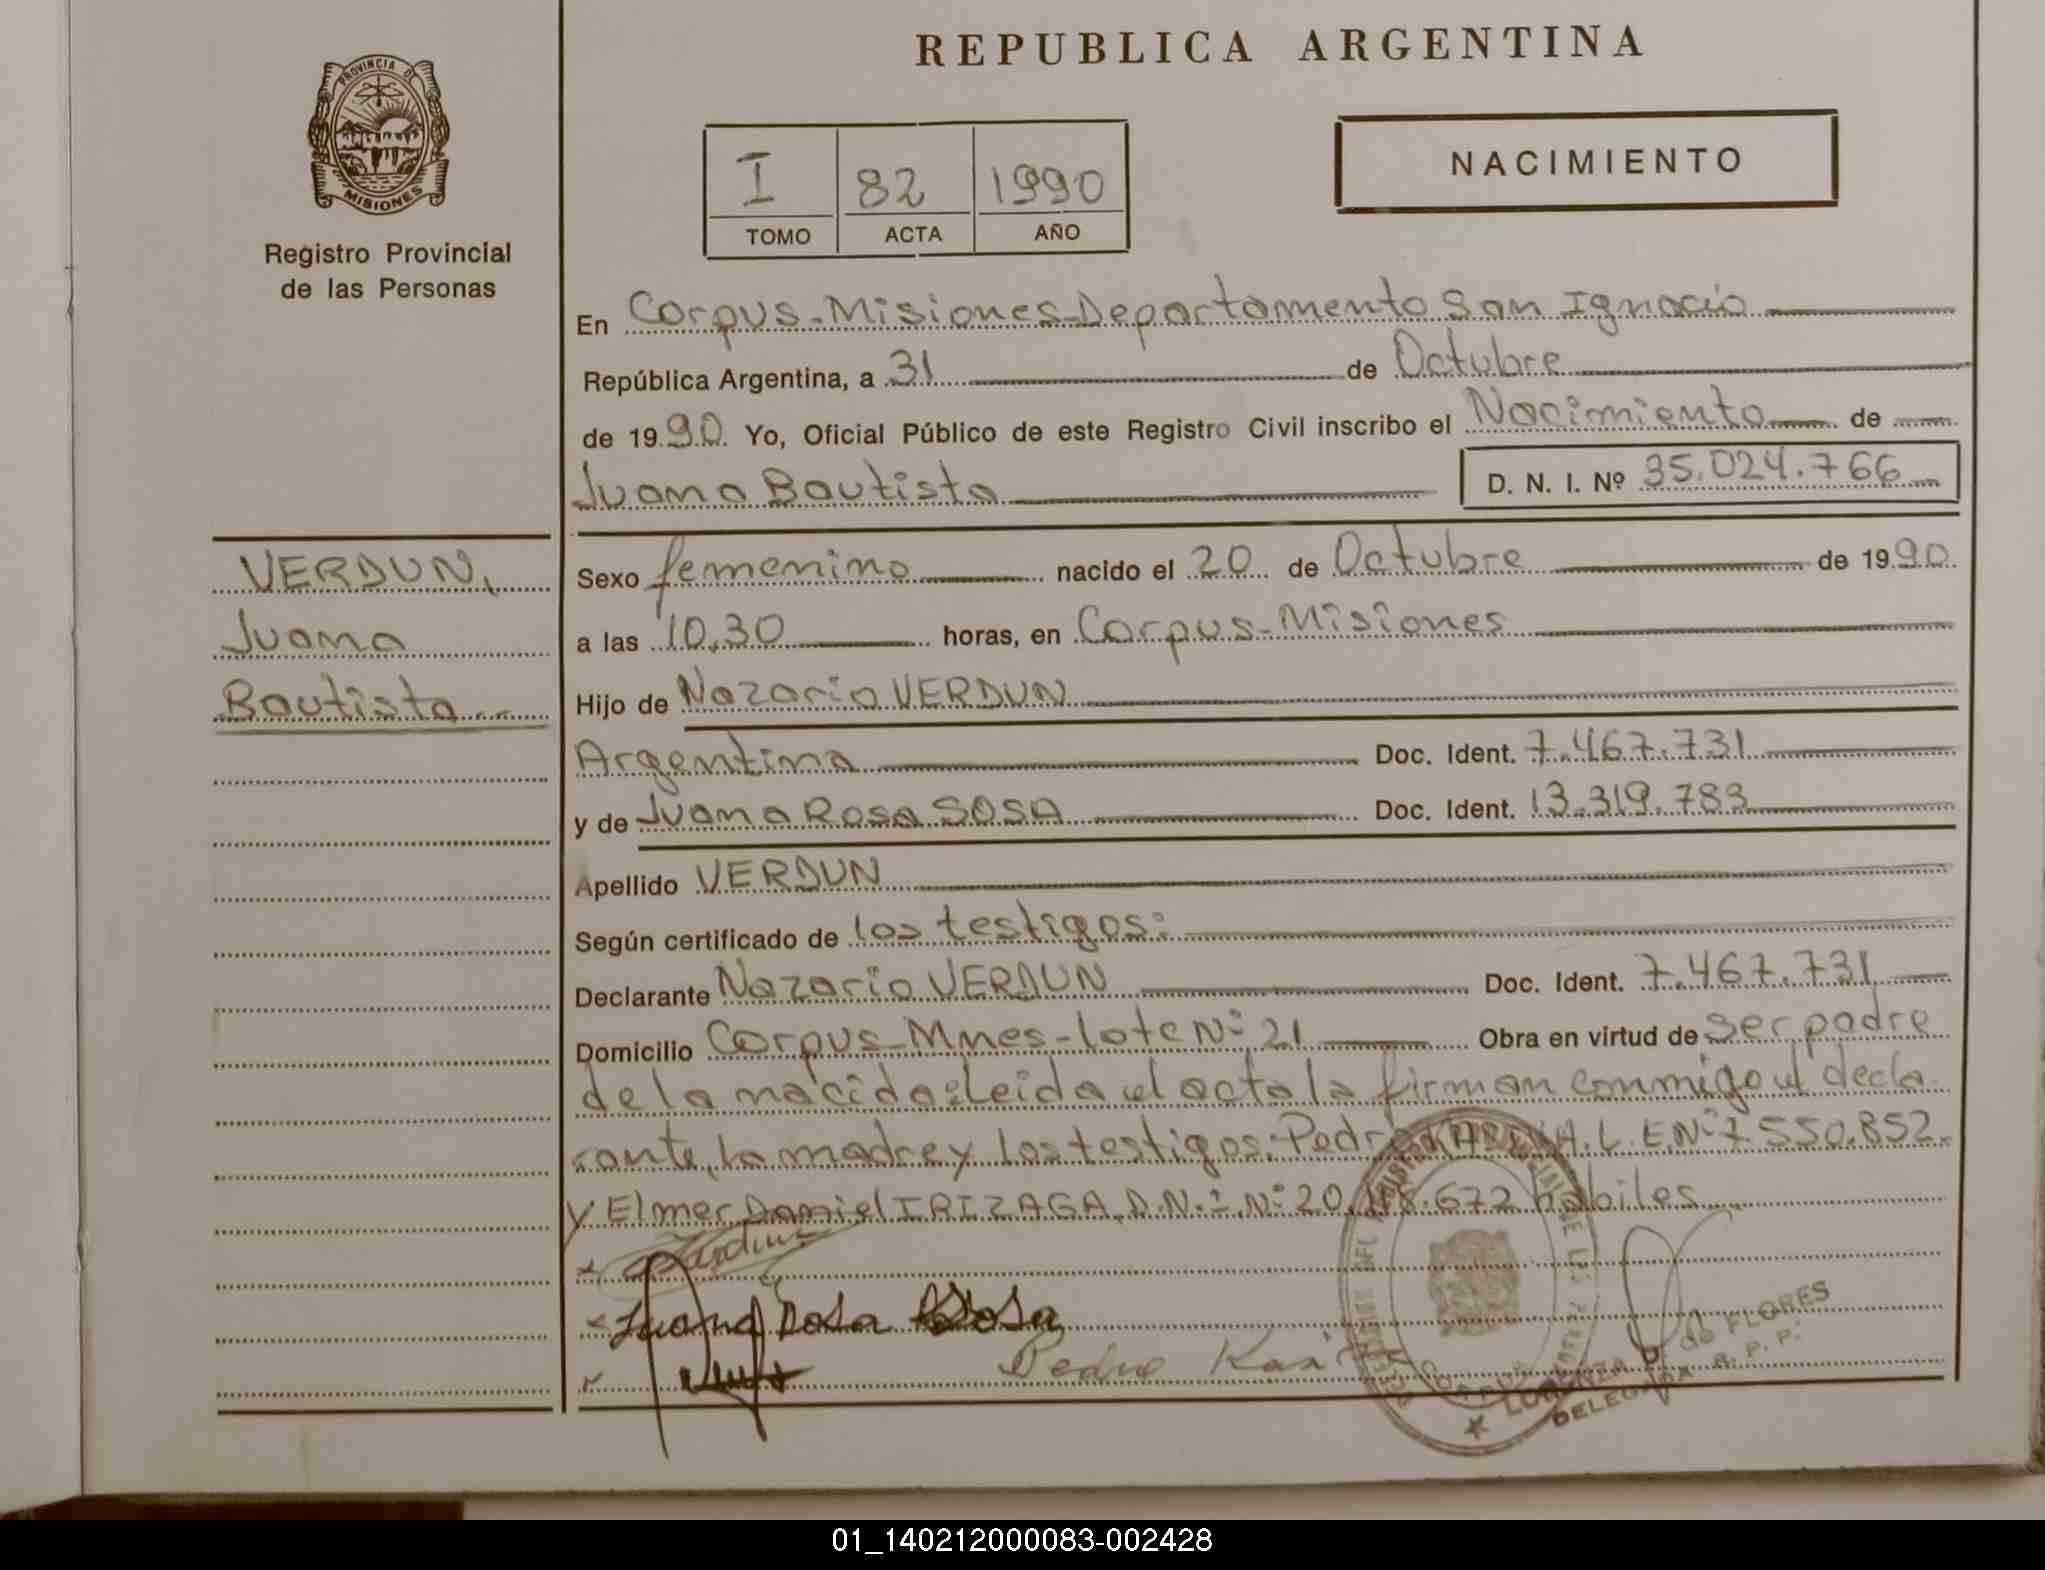 REPUBLICA ARGENTINA
PROVINCIA DE
MISIONES
Registro Provincial
de las Personas
I 82 1990
TOMO ACTA AÑO
NACIMIENTO
En Corpus-Misiones-Departamento San Ignacio
República Argentina, a 31 de Octubre
de 1990. Yo, Oficial Público de este Registro Civil inscribo el Nacimiento de
Juana Bautista D. N. I. Nº 35.024.766
VERDUN,
Juana
Bautista
Sexo femenino nacido el 20 de Octubre de 1990
a las 10,30 horas, en Corpus-Misiones
Hijo de Nazario VERDUN
Argentina Doc. Ident. 7.467.731
y de Juana Rosa SOSA Doc. Ident. 13.319.783
Apellido VERDUN
Según certificado de los testigos:
Declarante Nazario VERDUN Doc. Ident. 7.467.731
Domicilio Corpus-Mnes-lote Nº 21 Obra en virtud de ser padre
de la nacida: Leida el acta la firman conmigo el decla-
rante, la madre y los testigos: Pedro L.E.Nº 7.550.852.
y Elmer Daniel IRIZAGA D.N.I. Nº habiles
Juana Rosa Sosa
Pedro
de FLORES
DELEGADA R. P. P.
01_140212000083-002428